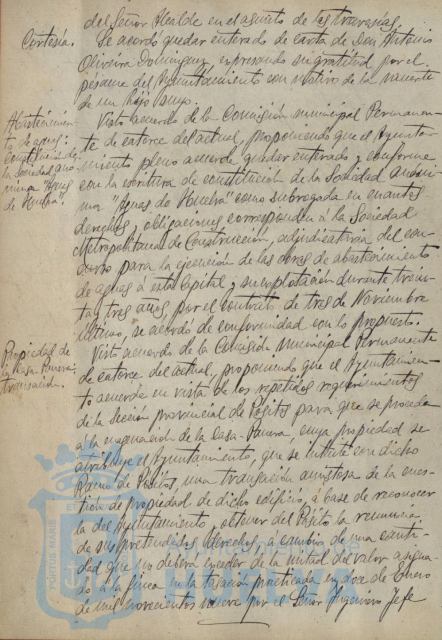 del Señor Alcalde en el asunto de las travesías.
Cortesía.
Se acordó quedar enterado de carta de Don Antonio
Oliveira Domínguez, expresando su gratitud por el
pésame del Ayuntamiento con motivo de la muerte
de un hijo suyo.
Abastecimien-
to de aguas:
constitución de
la Sociedad anó-
nima "Aguas
de Huelva".
Visto acuerdo de la Comisión municipal Permanen-
te de catorce del actual, proponiendo que el Ayunta-
miento pleno acuerde quedar enterado y conforme
con la escritura de constitución de la Sociedad anóni-
ma "Aguas de Huelva" como subrogada en cuantos
derechos y obligaciones corresponden á la Sociedad
Metropolitana de Construcción, adjudicataria del con-
curso para la ejecución de las obras de abastecimiento
de aguas á esta Capital y su explotación durante trein-
ta y tres años, por el contrato de tres de Noviembre
último, se acordó de conformidad con lo propuesto.
Propiedad de
la Casa-Panera:
transacción.
Visto acuerdo de la Comisión municipal Permanente
de catorce del actual, proponiendo que el Ayuntamien-
to acuerde en vista de los repetidos requerimientos
de la Sección provincial de Pósitos para que se proceda
á la enajenación de la Casa-Panera, cuya propiedad se
atribuye el Ayuntamiento, que se intente con dicho
Ramo de Pósitos, una transacción amistosa de la cues-
tión de propiedad de dicho edificio, á base de reconocer
la del Ayuntamiento, y obtener del Pósito la renuncia
de sus pretendidos derechos á cambio de una canti-
dad que no deberá exceder de la mitad del valor asigna-
do á la finca en la tasación practicada en doce de Enero
de mil novecientos nueve por el Señor Ingeniero Jefe
PORTUS MARIS ET
HUELVA